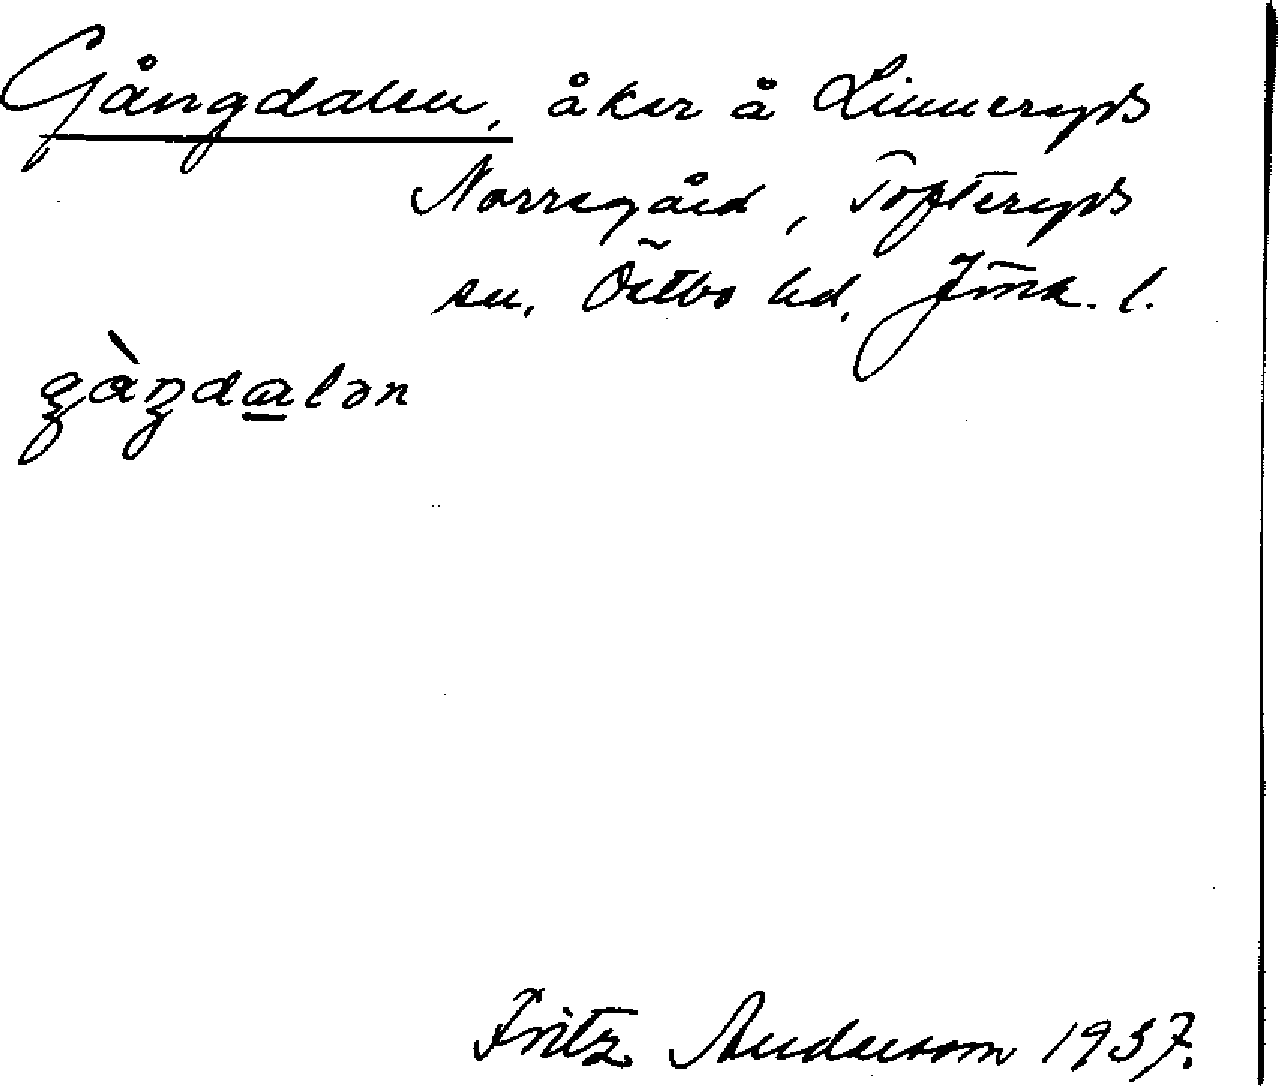 Gångdalen, åker å Linneryds
Norregård, Tofteryds
sn. Östbo hd. Jönk. l.
gàŋdalən
Fritz Anderson 1937.